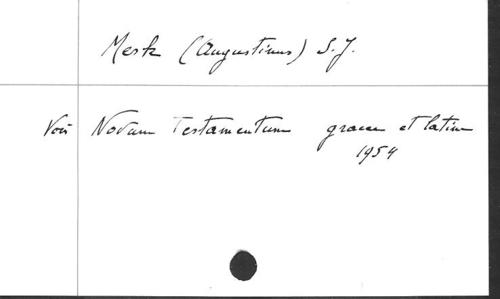 Merk (Augustinus) S. J.
Voir Novum Testamentum graece et latine
1954